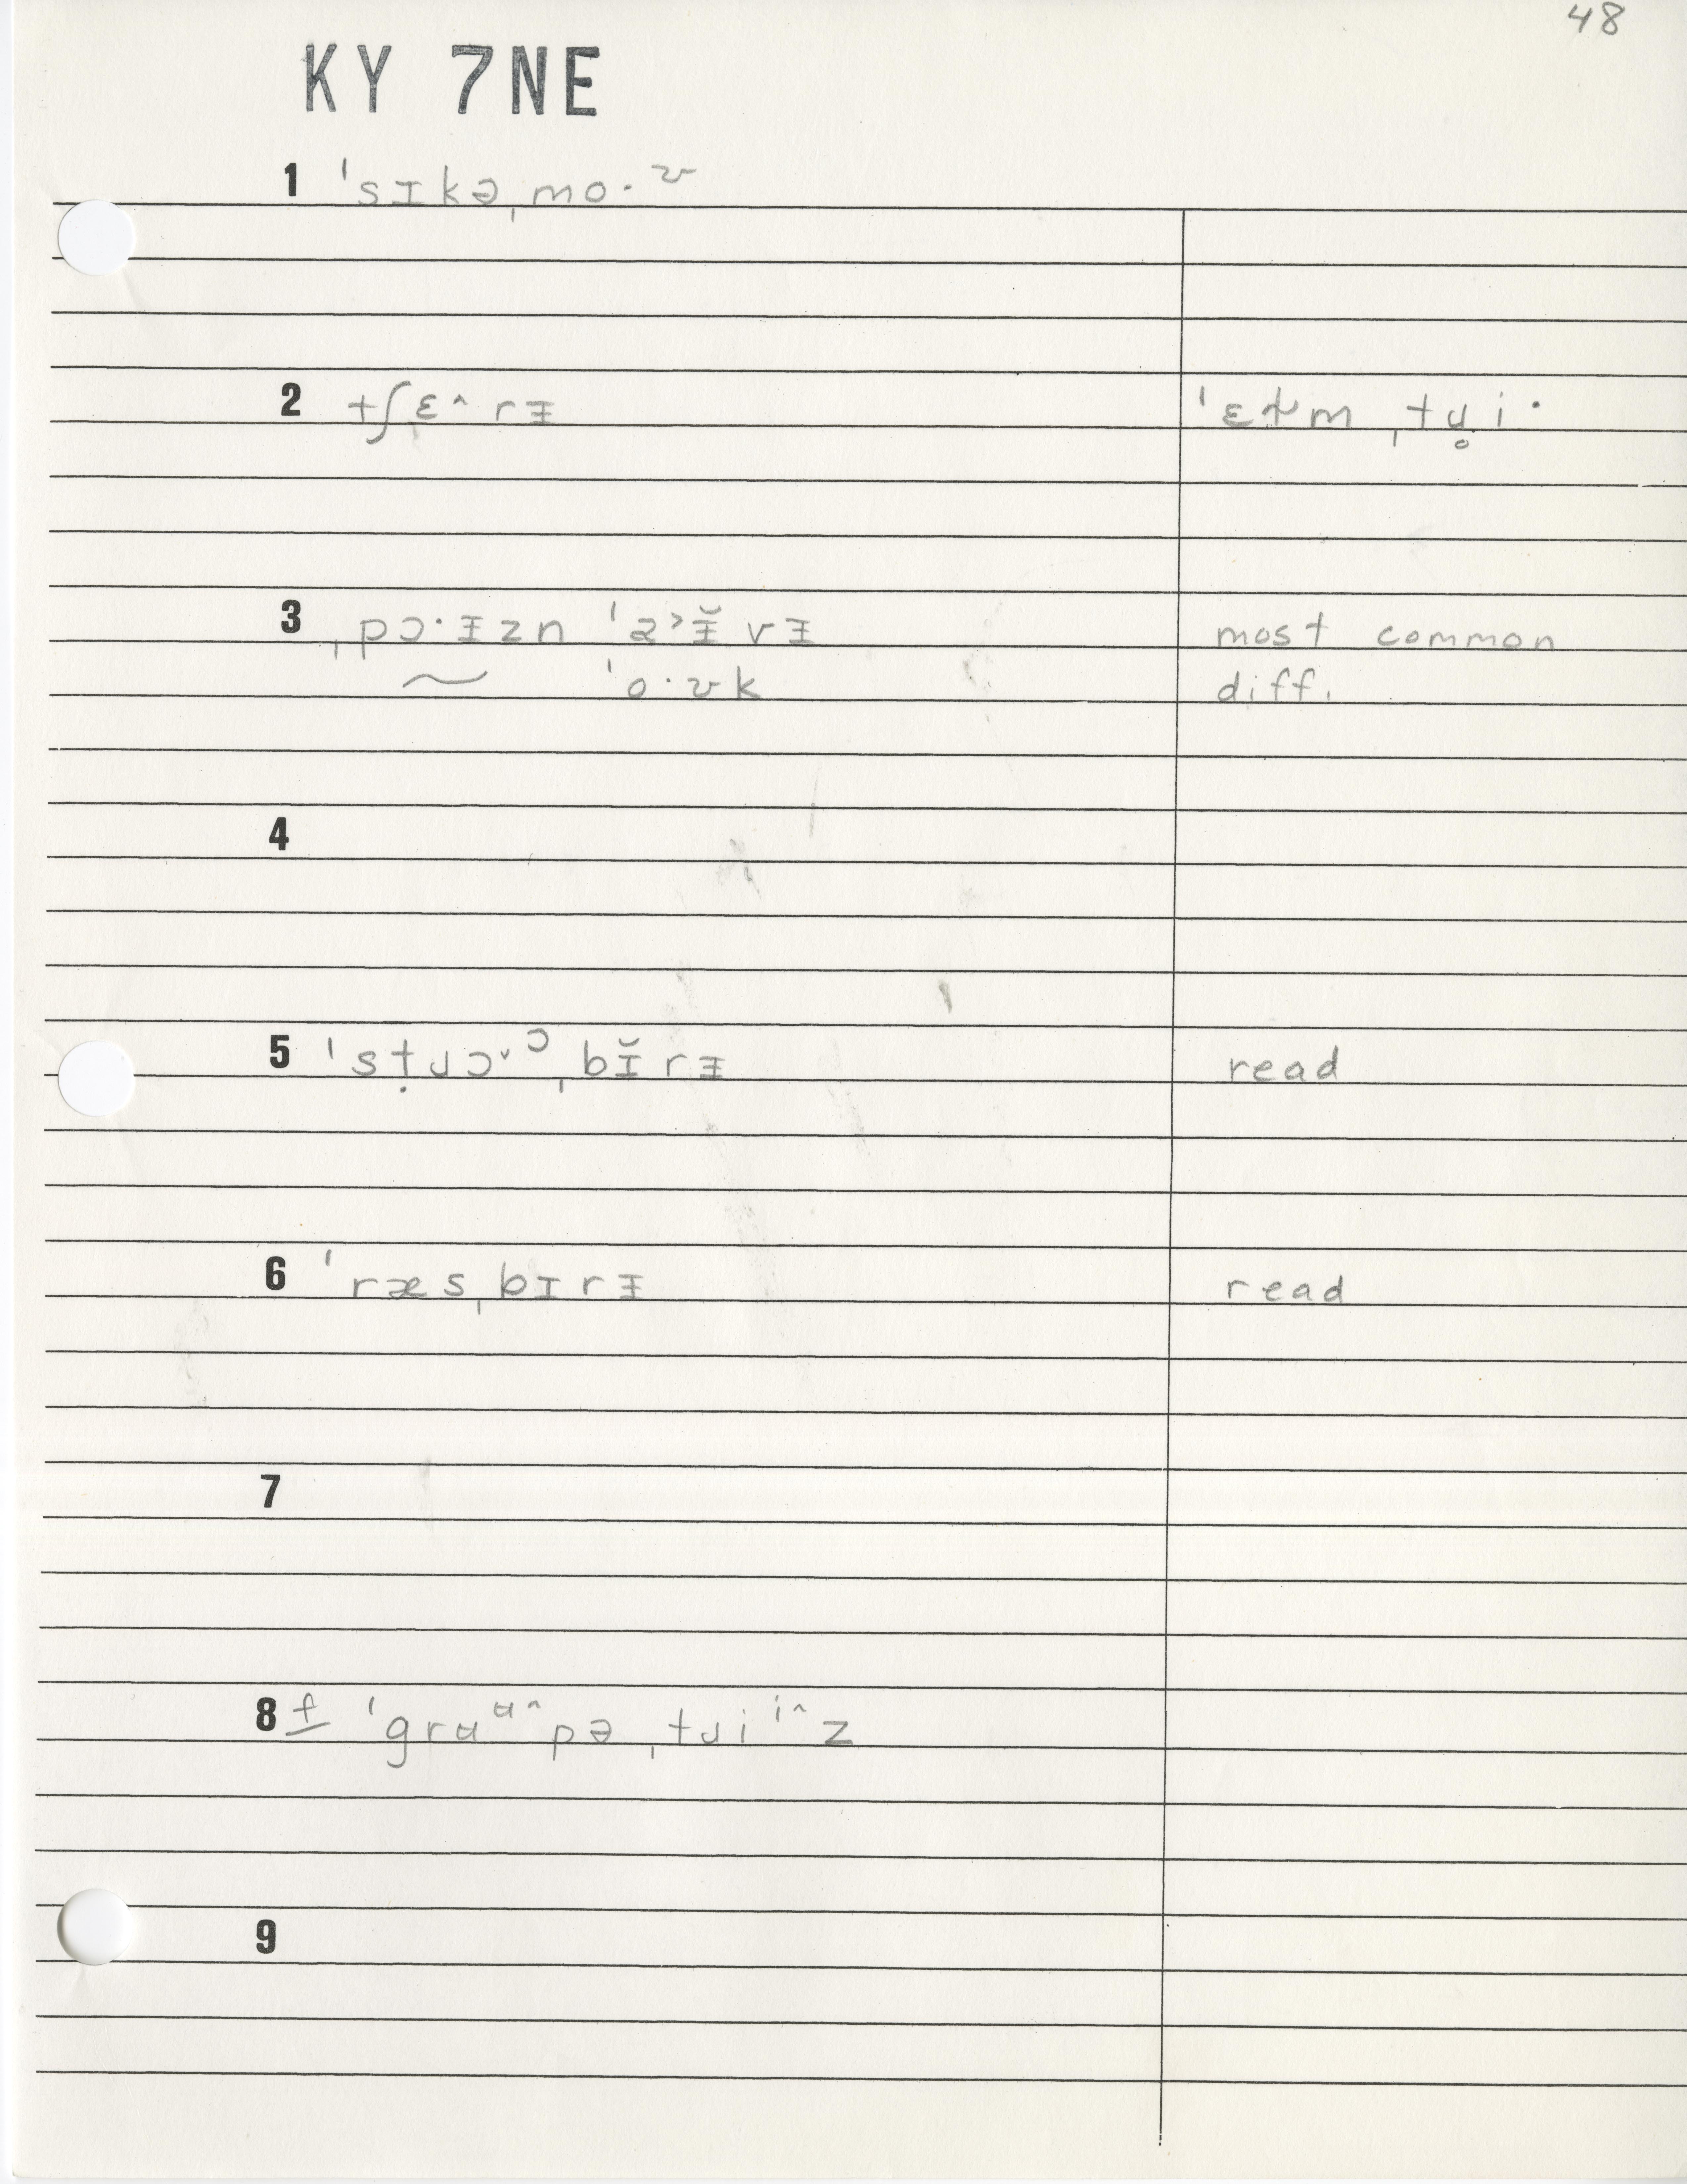 48
KY 7NE
1 ˈsɪkəˌmo·ᶹ
2 tʃɛ^rᵻ ˈɛɫmˌtɹ̥i·
3 ˌpɔ·ᵻzn ˈɑ˃ᵻ̆vᵻ most common
~ ˈo·ʊk diff.
4
5 ˈsṭɹɔˇᵓˌbɪ̆rᵻ read
6 ˈræsˌbɪrᵻ read
7
8 f ˈgrɑᵅ^pəˌtɹiⁱ^z
9